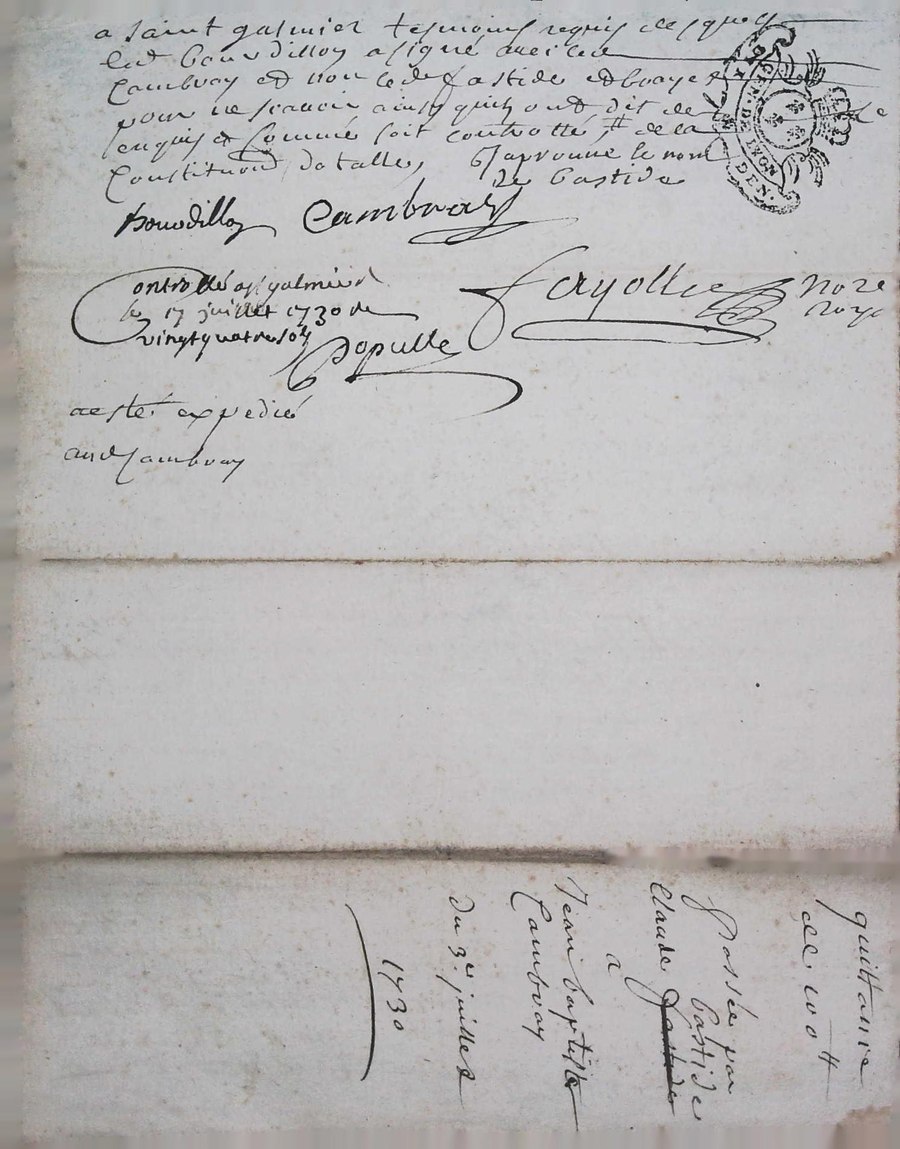 a saint galmier tesmoins requis desquels
led bourdillon a signé avec led
Cambray et non led fastide et broaye
pour ne scavoir ainsy quils ont dit de ce
enquis et sommé soit controllé # de la
Constituon datalle, Japrouuue le nom
de bastide
Bourdillon Cambray
Controllé a st galmier
le 17 juillet 1730 re
vingt quatre sols
Fayolle nore
roya
Populle
a esté expedié
aud Cambray
GEN. DE LYON
DEN.
quittance
de 100 tt
passée par
bastide
Claude
a
Jean baptiste
Cambray
du 3e juillet
1730